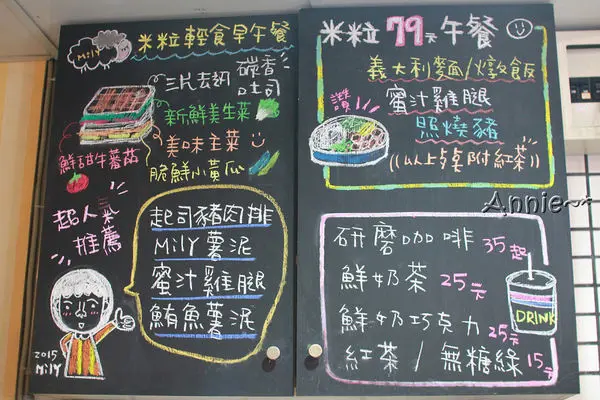 Mily
米粒輕食早午餐
三片去奶
碳香
吐司
新鮮美生菜
美味主菜
鮮甜牛蕃茄
脆鮮小黃瓜
超人氣
推薦
起司豬肉排
Mily薯泥
蜜汁雞腿
鮪魚薯泥
2015
Mily
米粒79元午餐
義大利麵/燉飯
讚
蜜汁雞腿
照燒豬
((以上餐點附紅茶))
Annie
研磨咖啡35起
鮮奶茶25元
鮮奶巧克力25元
紅茶/無糖綠15元
DRINK